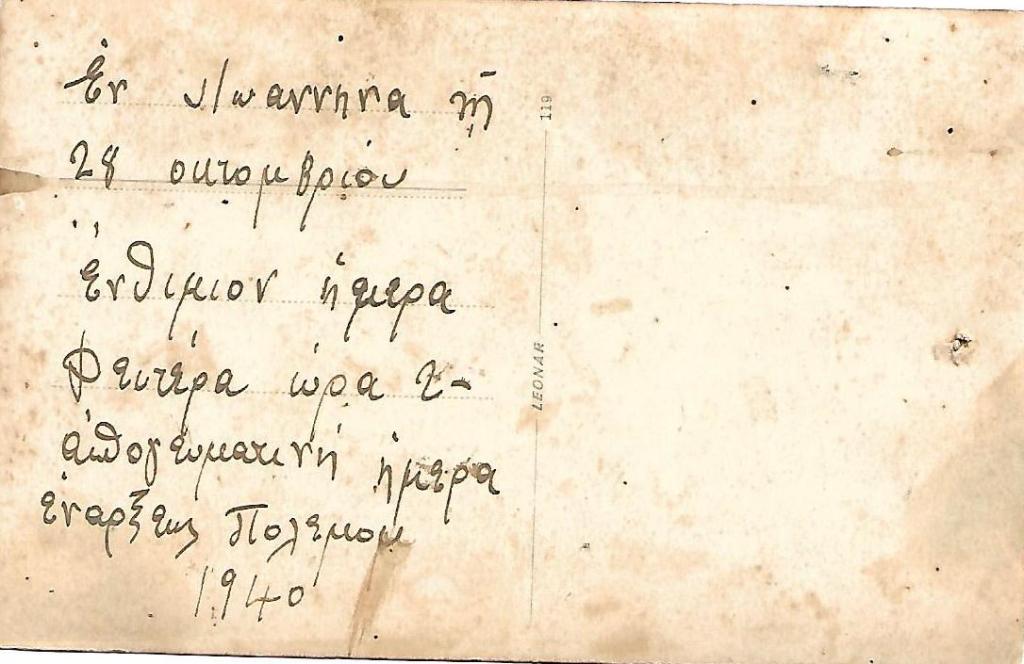 Ἐν Ἰωαννηνα τῇ
28 οκτομβρίου
Ἐνθιμιον ἡμερα
Δευτέρα ὡρα 2-
απογευματινή ἡμερα
ἐναρξεως Πολεμου
1940
119
LEONAR